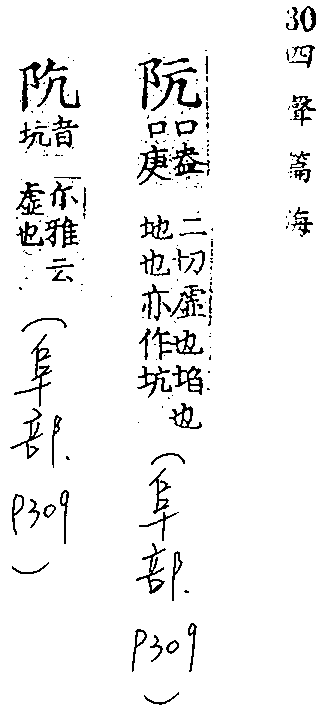 30 四聲篇海
阮 口盎口庚二切虛也埳也地也亦作坑
(阜部. P309)
阬 音坑 尔雅云虛也
(阜部. P309)